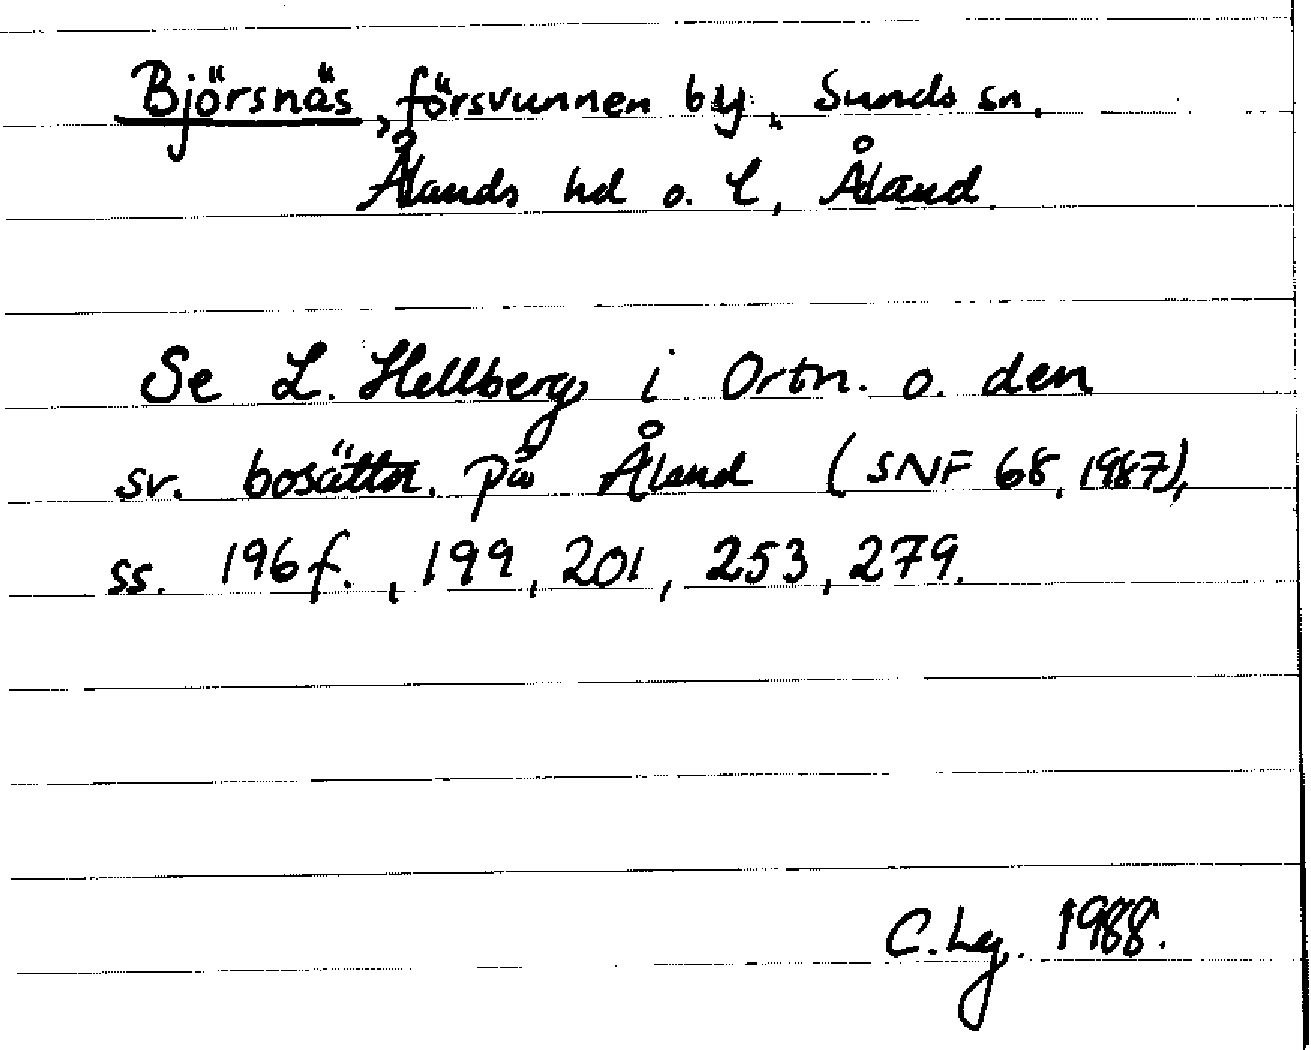 Björsnäs, försvunnen by, Sunds sn,
Ålands hd o. l, Åland.
Se L. Hellberg i Ortn. o. den
sv. bosättn. på Åland (SNF 68, 1987),
ss. 196 f., 199, 201, 253, 279.
C. Lg. 1988.